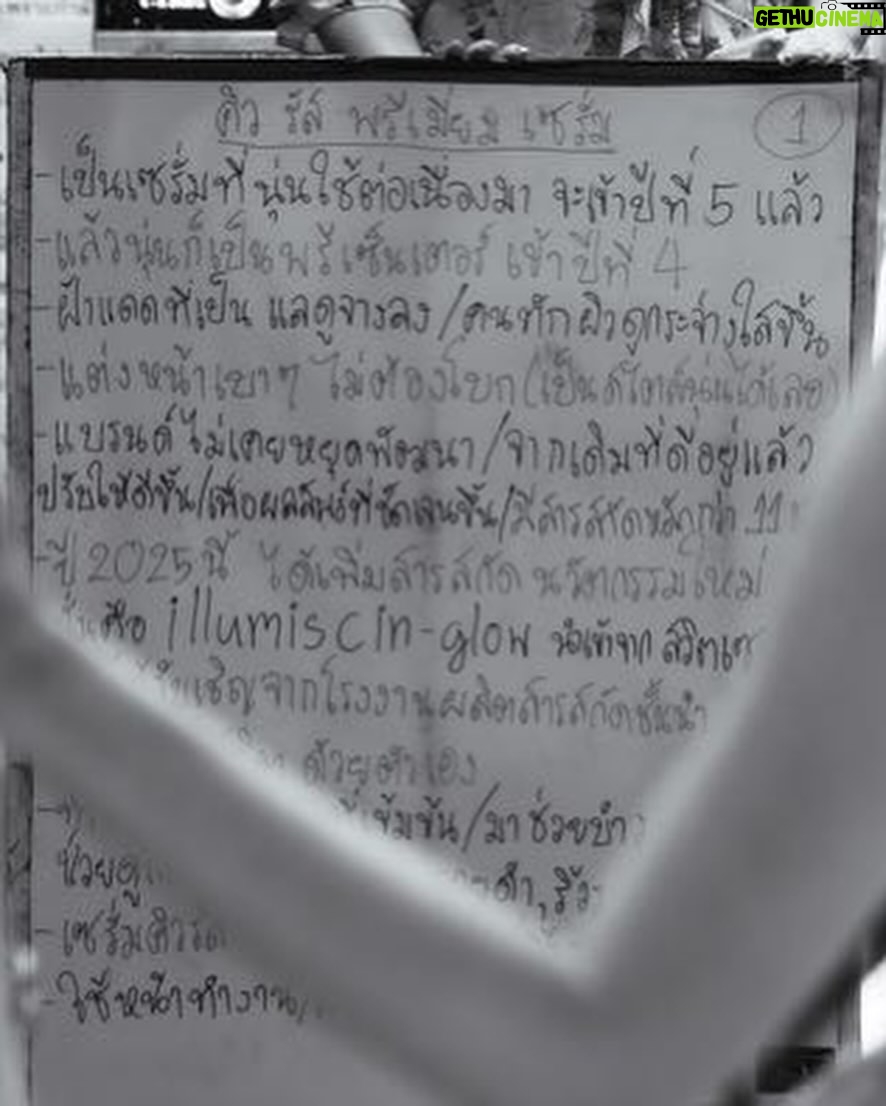 GETHUCINEMA
คิว รัส พรีเมี่ยม เซรั่ม
1
-เป็นเซรั่มที่นุ่นใช้ต่อเนื่องมา จะเข้าปีที่ 5 แล้ว
-แล้วนุ่นก็เป็นพรีเซ็นเตอร์ เข้าปีที่ 4
-ฝ้าแดดที่เป็น แลดูจางลง/คนทักผิวดูกระจ่างใสขึ้น
-แต่งหน้าเบาๆ ไม่ต้องโบก(เป็นสไตล์นุ่นได้เลย)
-แบรนด์ไม่เคยหยุดพัฒนา/จากเดิมที่ดีอยู่แล้ว
ปรับให้ดีขึ้น/เพื่อผลลัพธ์ที่ชัดเจนขึ้น/มีสารสกัดหลักกว่า 11
-ปี 2025 นี้ ได้เพิ่มสารสกัด นวัตกรรมใหม่
คือ illumiscin-glow นำเข้าจาก สวิตเซ
เชิญจากโรงงานผลิตสารสกัดชั้นนำ
ด้วยตัวเอง
เข้มข้น/มาช่วยบำ
ช่วยดู ดำ,ริ้ว
-เซรั่มคิวรัส
-ใช้หน้าทำงาน/